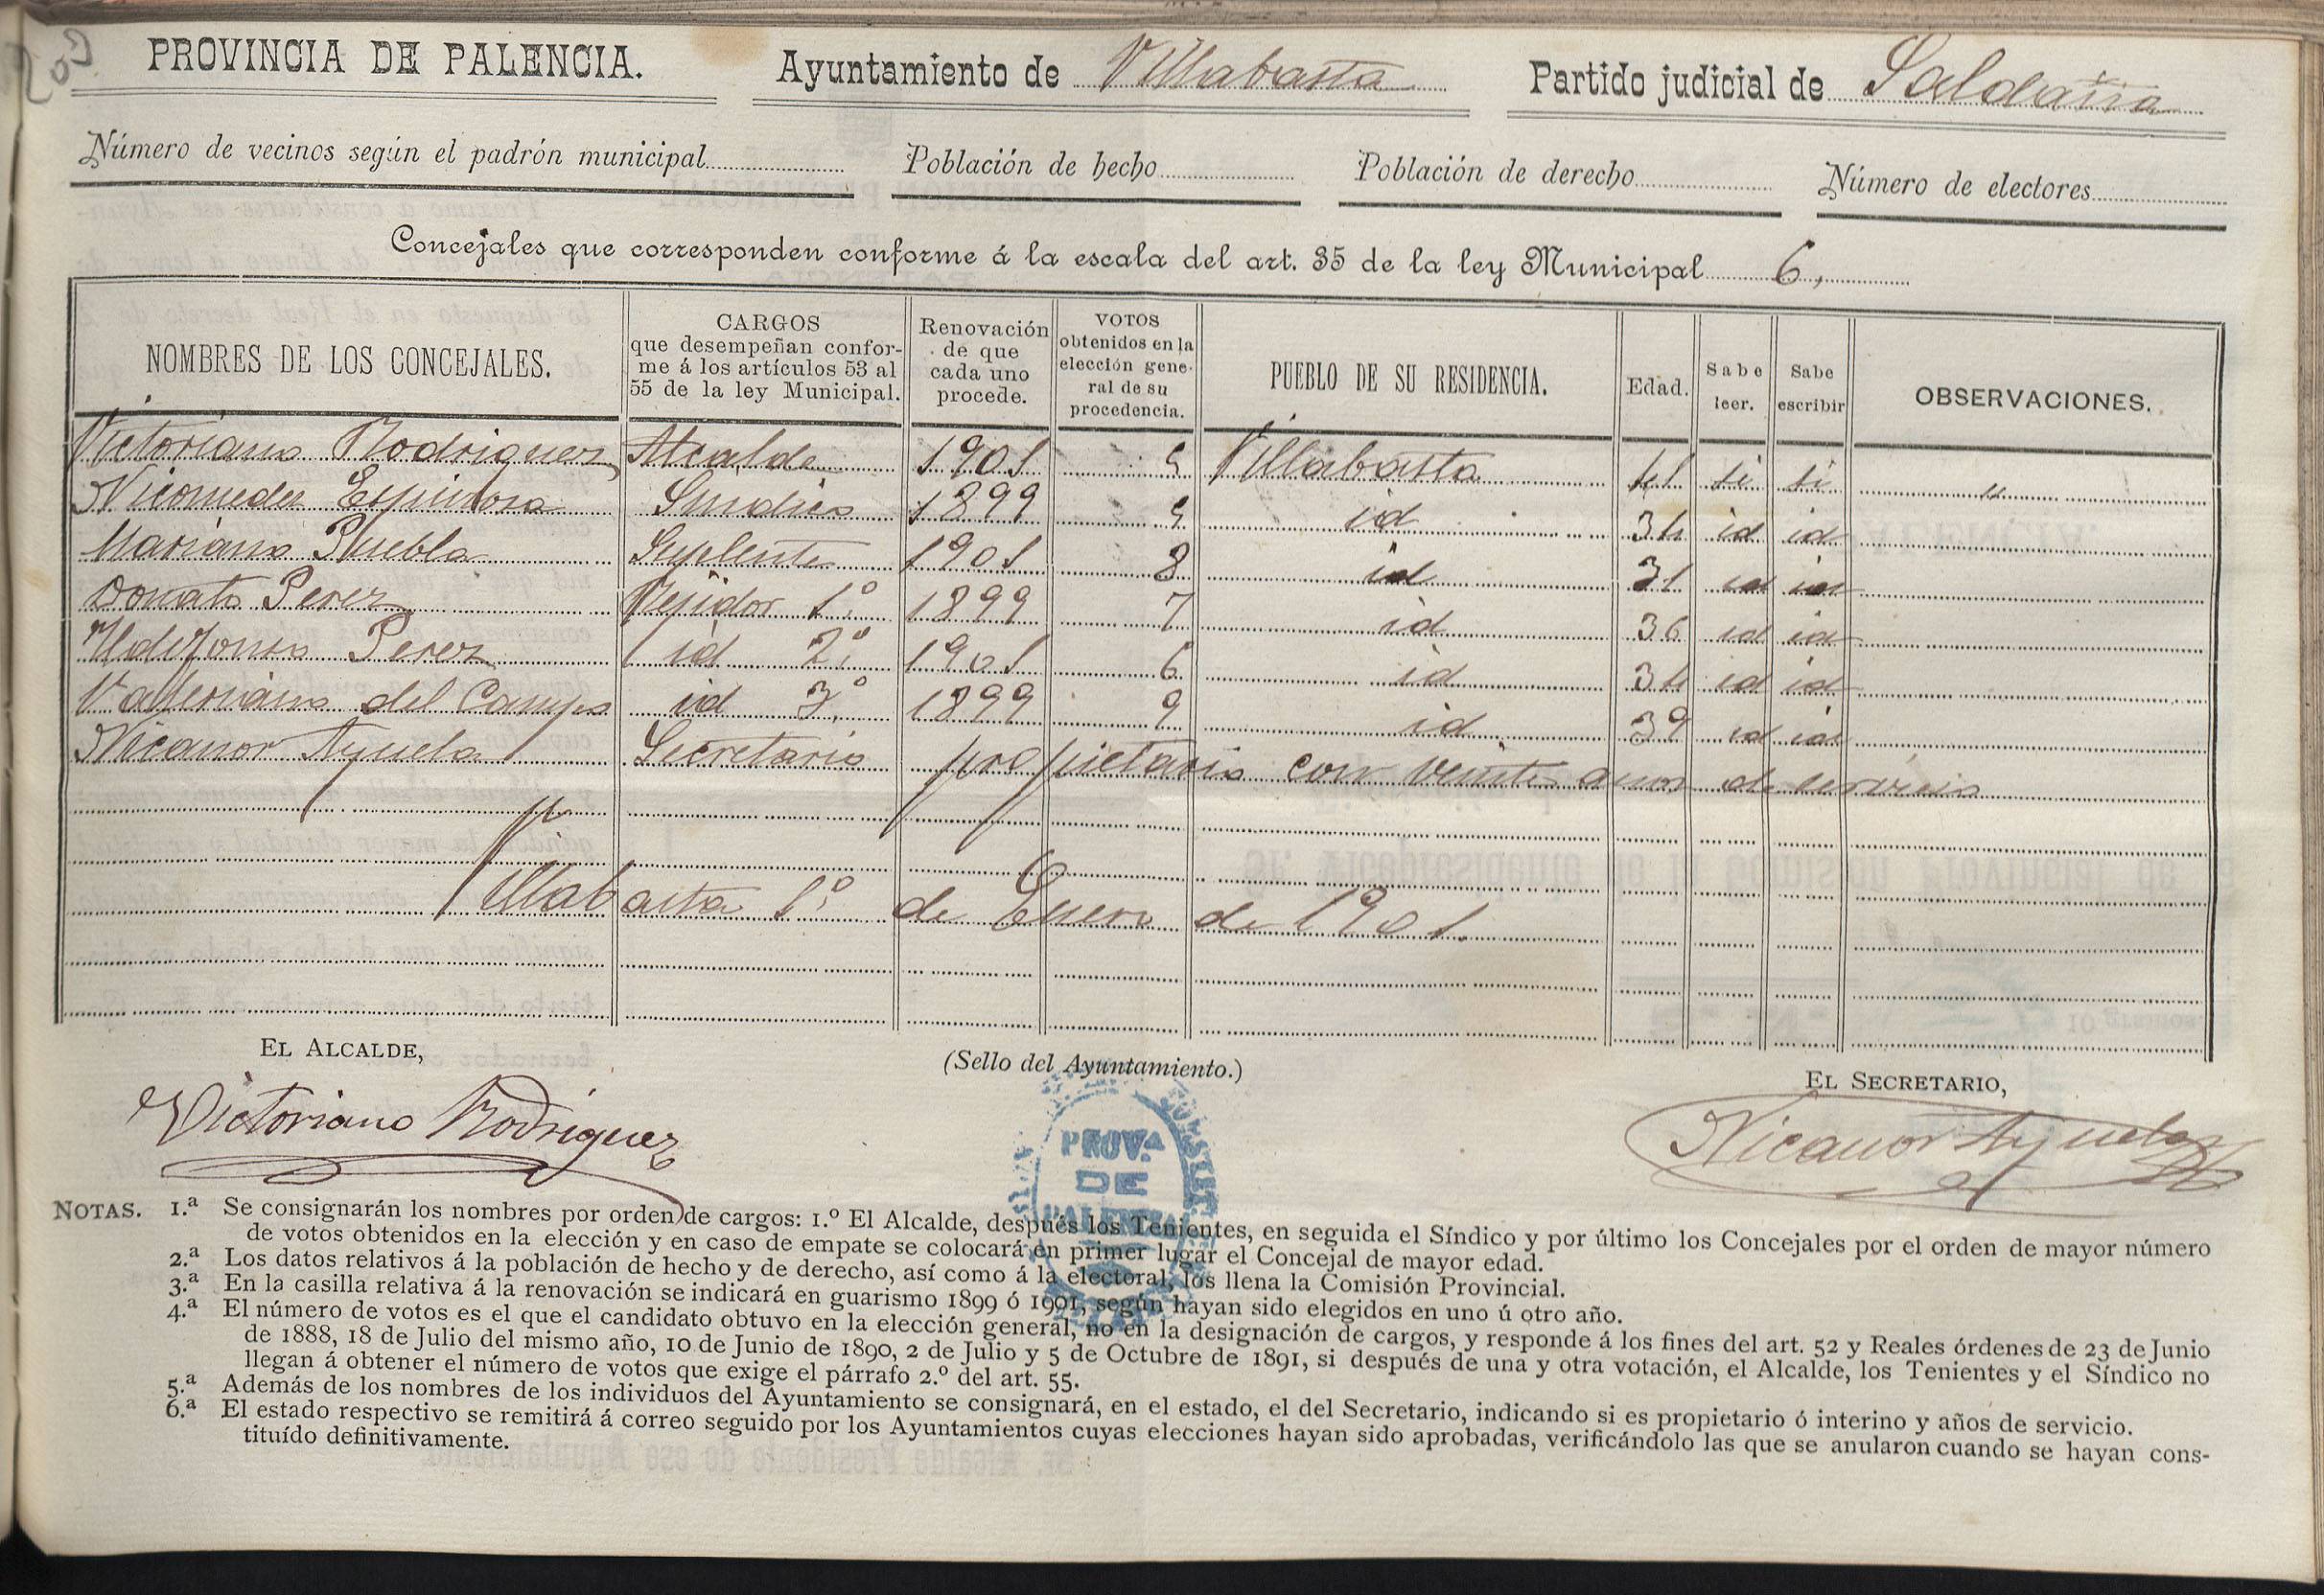 PROVINCIA DE PALENCIA. Ayuntamiento de Villabasta Partido judicial de Saldaña
Número de vecinos según el padrón municipal Población de hecho Población de derecho Número de electores
Concejales que corresponden conforme á la escala del art. 35 de la ley Municipal 6,
NOMBRES DE LOS CONCEJALES. CARGOS que desempeñan conforme á los artículos 53 al 55 de la ley Municipal. Renovación de que cada uno procede. VOTOS obtenidos en la elección general de su procedencia. PUEBLO DE SU RESIDENCIA. Edad. Sabe leer. Sabe escribir OBSERVACIONES.
Victoriano Rodriguez Alcalde 1901 Villabasta si si "
Nicomedes Espinosa Sindico 1899 id 34 id id
Mariano Puebla Suplente 1901 8 id 31 id id
Donato Perez Rejidor 1.º 1899 7 id 36 id id
Yldefonso Perez id 2.º 1901 6 id 34 id id
Valeriano del Campo id 3.º 1899 9 id 39 id id
Nicanor Ayuela Secretario propietario con veinte años de servicio
Villabasta 1.º de Enero de 1901.
EL ALCALDE, (Sello del Ayuntamiento.) EL SECRETARIO,
Victoriano Rodriguez Nicanor Ayuela
PROV.ª
DE
PALENCIA
NOTAS. 1.ª Se consignarán los nombres por orden de cargos: 1.º El Alcalde, después los Tenientes, en seguida el Síndico y por último los Concejales por el orden de mayor número
de votos obtenidos en la elección y en caso de empate se colocará en primer lugar el Concejal de mayor edad.
2.ª Los datos relativos á la población de hecho y de derecho, así como á la electoral, los llena la Comisión Provincial.
3.ª En la casilla relativa á la renovación se indicará en guarismo 1899 ó 1901, según hayan sido elegidos en uno ú otro año.
4.ª El número de votos es el que el candidato obtuvo en la elección general, no en la designación de cargos, y responde á los fines del art. 52 y Reales órdenes de 23 de Junio
de 1888, 18 de Julio del mismo año, 10 de Junio de 1890, 2 de Julio y 5 de Octubre de 1891, si después de una y otra votación, el Alcalde, los Tenientes y el Síndico no
llegan á obtener el número de votos que exige el párrafo 2.º del art. 55.
5.ª Además de los nombres de los individuos del Ayuntamiento se consignará, en el estado, el del Secretario, indicando si es propietario ó interino y años de servicio.
6.ª El estado respectivo se remitirá á correo seguido por los Ayuntamientos cuyas elecciones hayan sido aprobadas, verificándolo las que se anularon cuando se hayan cons-
tituído definitivamente.